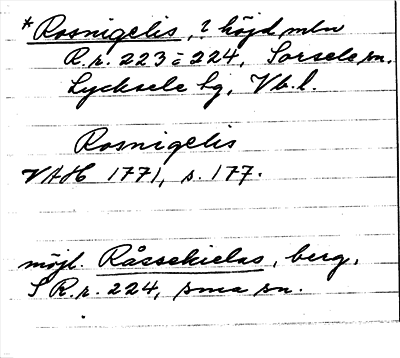 *Rosnigelis, ? höjd mln
R.r. 223 - 224, Sorsele sn.
Lycksele lg, Vb.l.
Rosnigelis
VAH 1771, s. 177.
möjl. Råssekielas, berg,
S R.r. 224, sma sn.